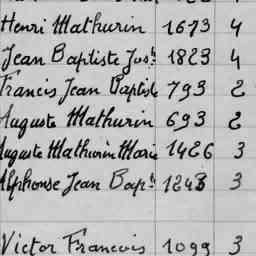 Henri Mathurin 1673 4
Jean Baptiste Jos.h 1823 4
Francis Jean Baptiste 793 2
Auguste Mathurin 693 2
Auguste Mathurin Marie 1426 3
Alphonse Jean Bap.te 1248 3
Victor Francois 1099 3